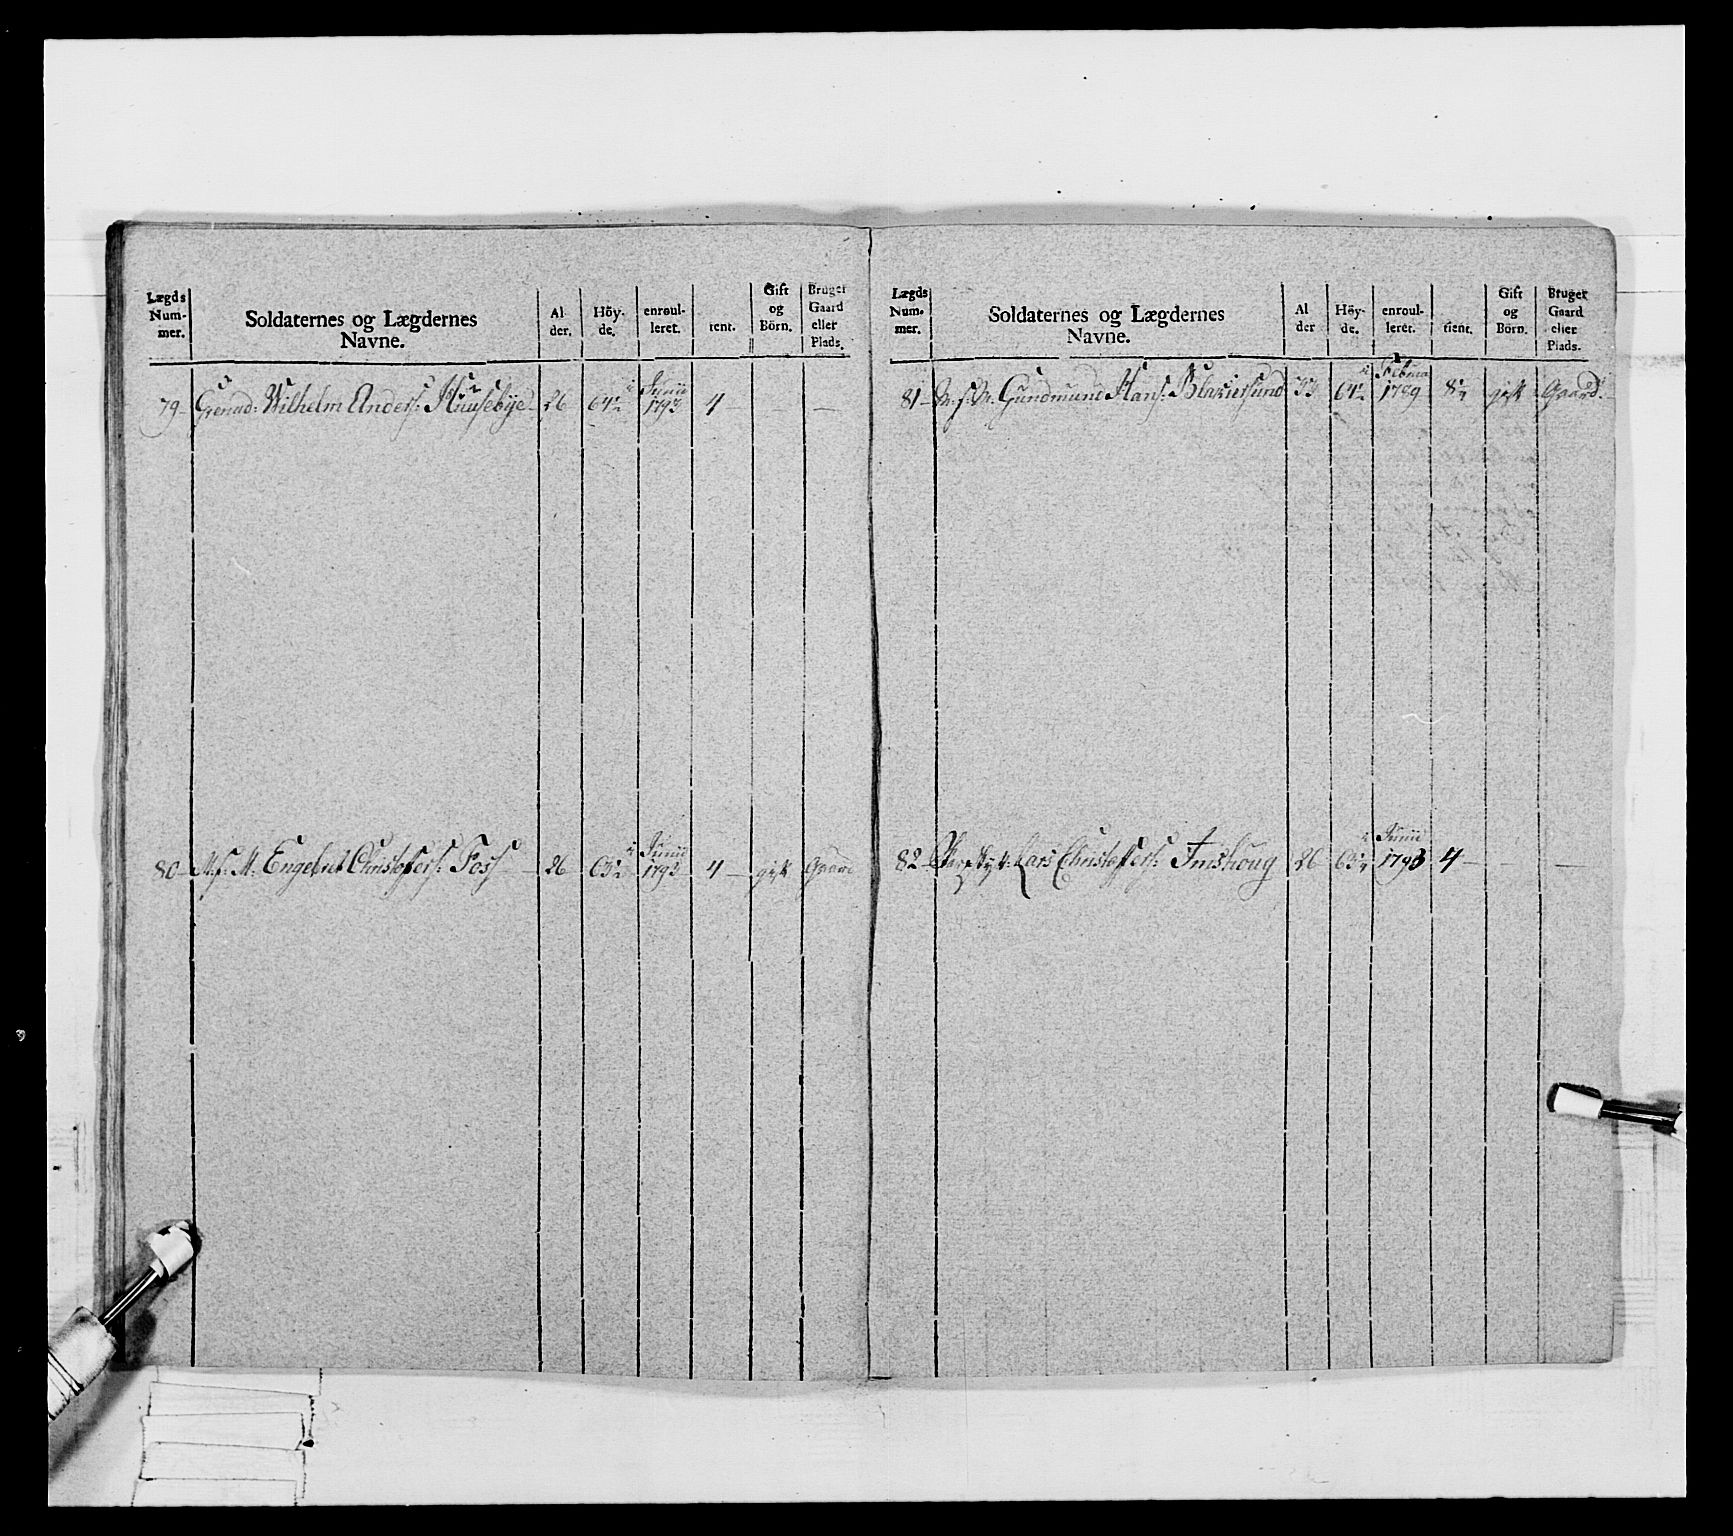 Lægds Num- mer. Soldaternes og Lægdernes Navne. Al der. Höy- de. enroul- leret. tient. Gift og Börn. Bruger Gaard eller Plads.
Junii
79 Grenad: Wilhelm Anders: Huusebÿe 26 64½ 1793 4 — — —
Junii
80 M: Engebret Christofers: Foss 26 63½ 1793 4 — gift Gaard
Lægds Num- mer. Soldaternes og Lægdernes Navne. Al der Höy- de. enroul- leret. tient. Gift og Börn. Bruger Gaard eller Plads.
Februar
81 Gundmund Hans: Blakiersund 33 64½ 1789 8½ gift Gaard.
Junii
82 Lars Christoffers: 26 63½ 1793 4 — — —